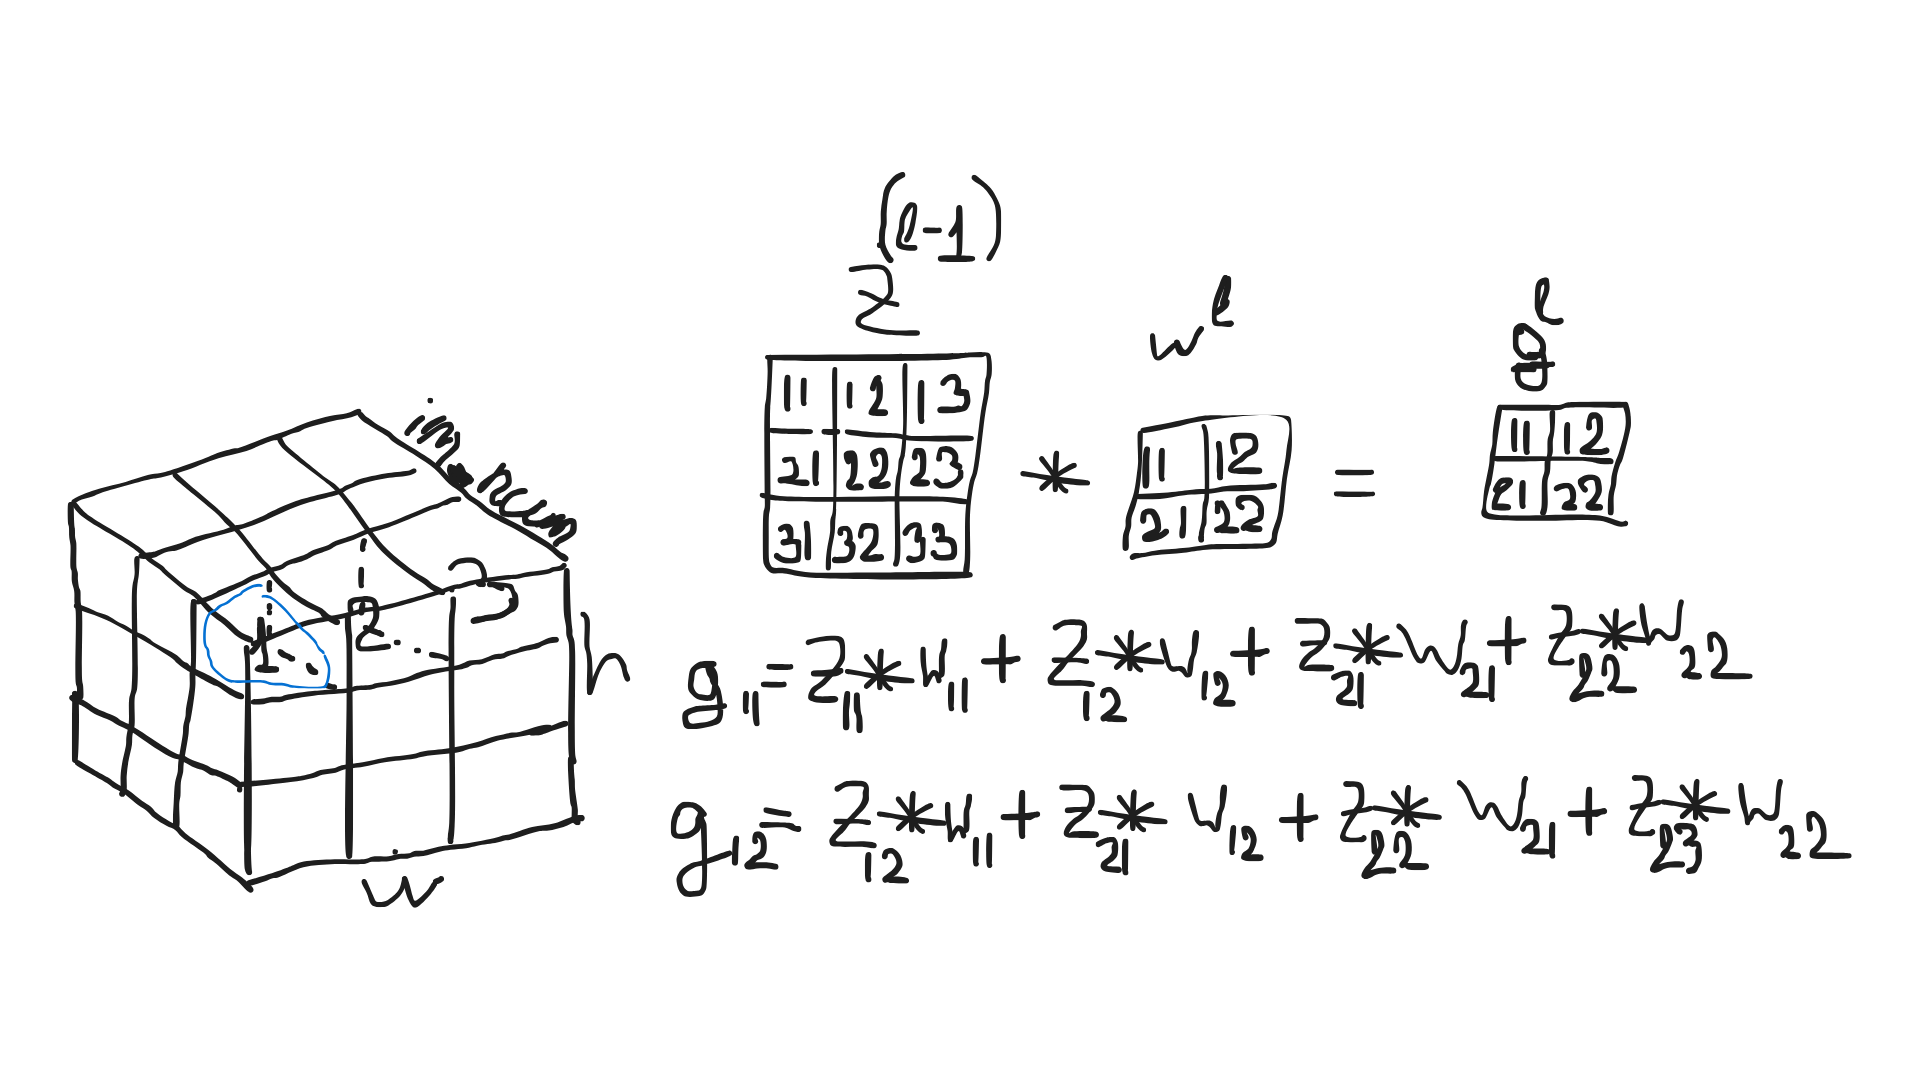 z^(l-1)
11 12 13
21 22 23
31 32 33
*
w^l
11 12
21 22
=
g^l
11 12
21 22
im num
1 2 3
h
w
g_11 = z_11 * w_11 + z_12 * w_12 + z_21 * w_21 + z_22 * w_22
g_12 = z_12 * w_11 + z_21 * w_12 + z_22 * w_21 + z_23 * w_22